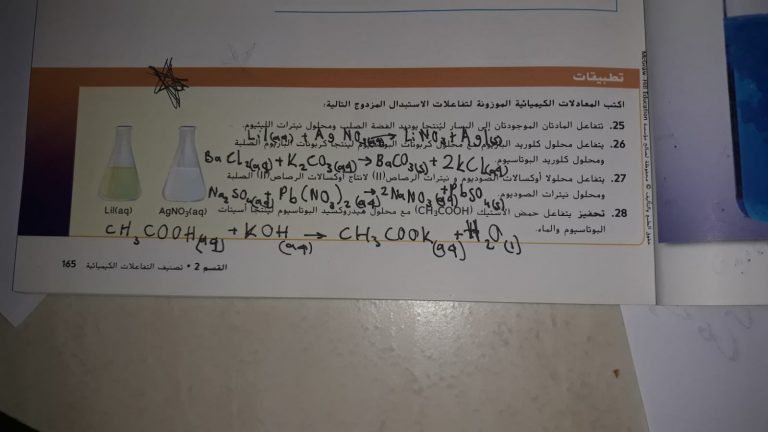 تطبيقات
اكتب المعادلات الكيميائية الموزونة لتفاعلات الاستبدال المزدوج التالية:
25. تتفاعل المادتان الموجودتان إلى اليسار لينتجا يوديد الفضة الصلب ومحلول نيترات الليثيوم.
LiI(aq) + AgNO3 → LiNO3 + AgI(s)
26. يتفاعل محلول كلوريد الباريوم مع محلول كربونات البوتاسيوم لينتجا كربونات الباريوم الصلبة
ومحلول كلوريد البوتاسيوم.
BaCl2(aq) + K2CO3(aq) → BaCO3(s) + 2KCl(aq)
27. يتفاعل محلولا أوكسالات الصوديوم و نيترات الرصاص(II) لانتاج أوكسالات الرصاص(II) الصلبة
ومحلول نيترات الصوديوم.
Na2SO4(aq) + Pb(NO3)2(aq) → 2NaNO3(aq) + PbSO4(s)
28. تحفيز يتفاعل حمض الأستيك (CH3COOH) مع محلول هيدروكسيد البوتاسيوم لينتجا أسيتات
البوتاسيوم والماء.
CH3COOH(aq) + KOH(aq) → CH3COOK(aq) + H2O(l)
LiI(aq)
AgNO3(aq)
القسم 2 • تصنيف التفاعلات الكيميائية 165